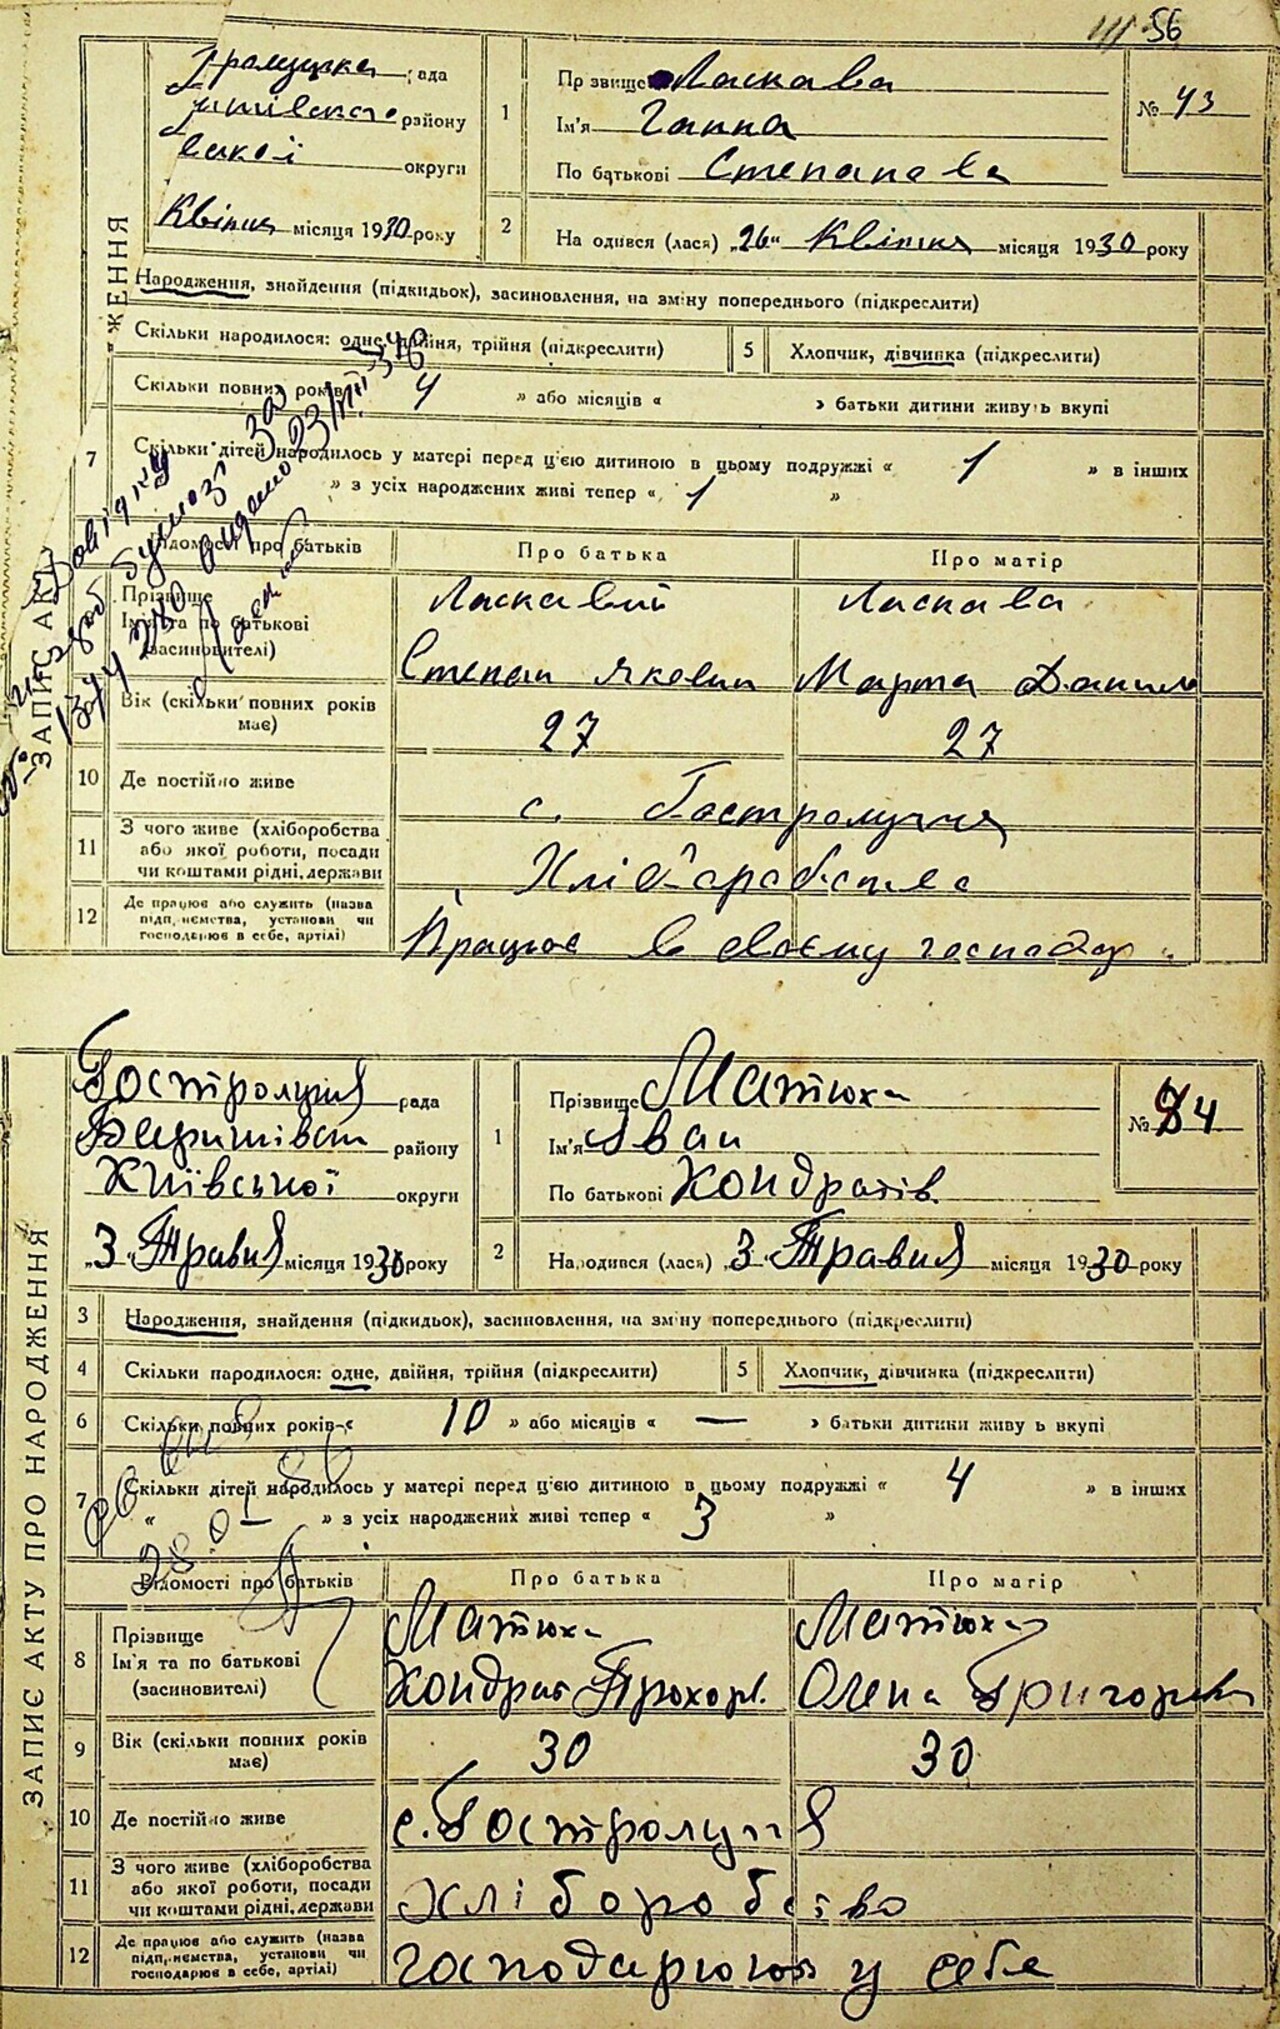 56
рада
району
округи
Квітня місяця 1930 року
1
Прізвище Ласкава
Ім'я Ганна
По батькові Степанова
№ 43
2
На одився (лася) „26" Квітня місяця 1930 року
Народження, знайдення (підкидьок), засиновлення, на зміну попереднього (підкреслити)
Скільки народилося: одне, двійня, трійня (підкреслити)
5
Хлопчик, дівчинка (підкреслити)
Скільки повних років 4 » або місяців « » батьки дитини живуть вкупі
7
Скільки дітей народилось у матері перед цією дитиною в цьому подружжі « 1 » в інших
» з усіх народжених живі тепер « 1 »
Відомості про батьків
Про батька
Про матір
Прізвище
Ім'я та по батькові
(засиновителі)
Ласкавий
Степан Якович
Ласкава
Марта Данил
Вік (скільки повних років має)
27
27
10
Де постійно живе
с. Гостролуччя
11
З чого живе (хліборобства
або якої роботи, посади
чи коштами рідні, держави
Хліборобства
12
Де працює або служить (назва
підприємства, установи чи
господарює в себе, артілі)
Працює в своєму господар.
ЗАПИС АКТ
ЖЕННЯ
Довідку
видано 23/III 36
ЗАПИС АКТУ ПРО НАРОДЖЕННЯ
Гостролуччя рада
Баришівськ району
Київської округи
„3" Травня місяця 1930 року
1
Прізвище Матюха
Ім'я Іван
По батькові Кондратів.
№ 84
2
Народився (лася) „3" Травня місяця 1930 року
3
Народження, знайдення (підкидьок), засиновлення, на зміну попереднього (підкреслити)
4
Скільки народилося: одне, двійня, трійня (підкреслити)
5
Хлопчик, дівчинка (підкреслити)
6
Скільки повних років « 10 » або місяців « — » батьки дитини живу ь вкупі
7
Скільки дітей народилось у матері перед цією дитиною в цьому подружжі « 4 » в інших
« — » з усіх народжених живі тепер « 3 »
Відомості про батьків
Про батька
Про матір
8
Прізвище
Ім'я та по батькові
(засиновителі)
Матюха
Кондрат Прохор.
Матюха
Олена Григорівна
9
Вік (скільки повних років має)
30
30
10
Де постійно живе
с. Гостролуччя
11
З чого живе (хліборобства
або якої роботи, посади
чи коштами рідні, держави
хліборобство
12
Де працює або служить (назва
підприємства, установи чи
господарює в себе, артілі)
господарюють у себе